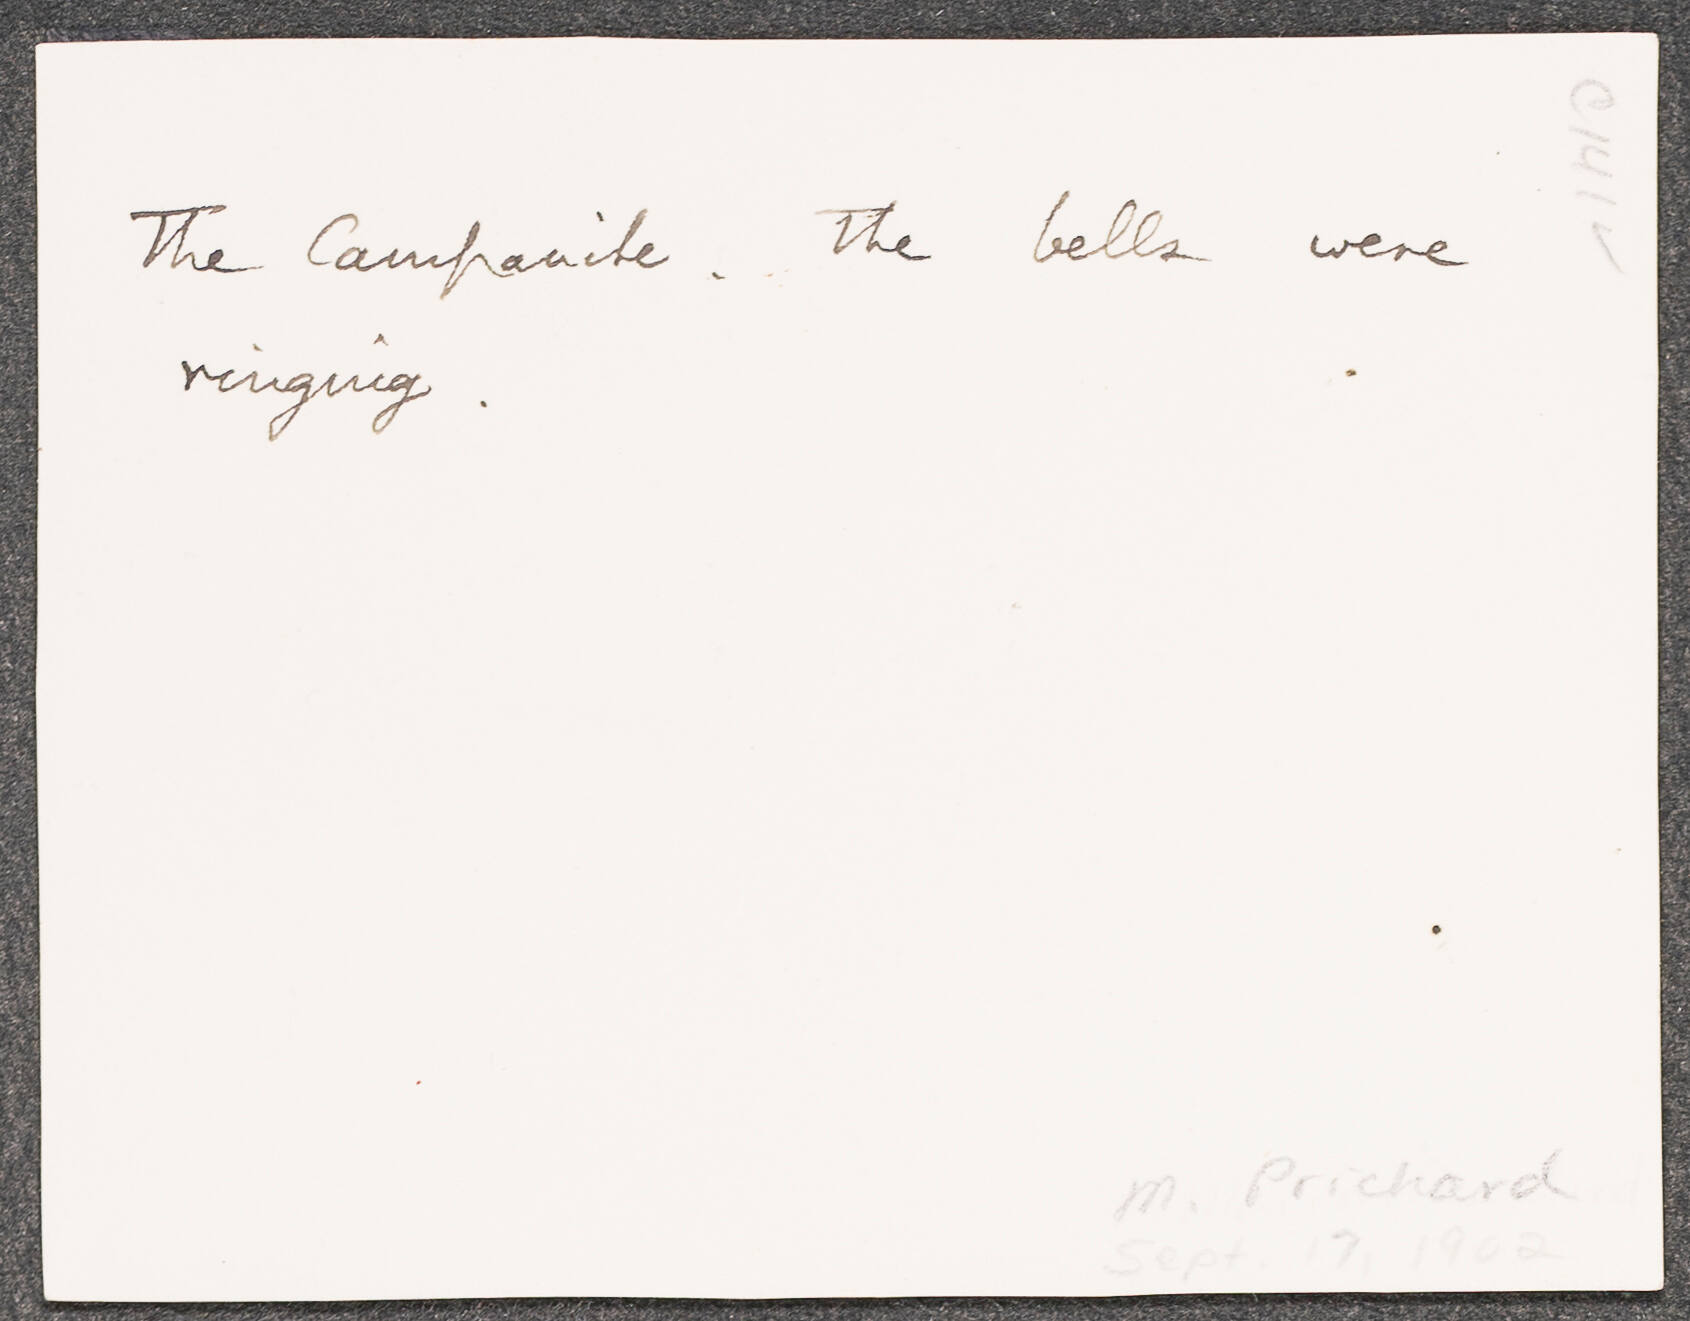 The Campanile. The bells were
ringing.
M. Prichard
Sept. 17, 1902